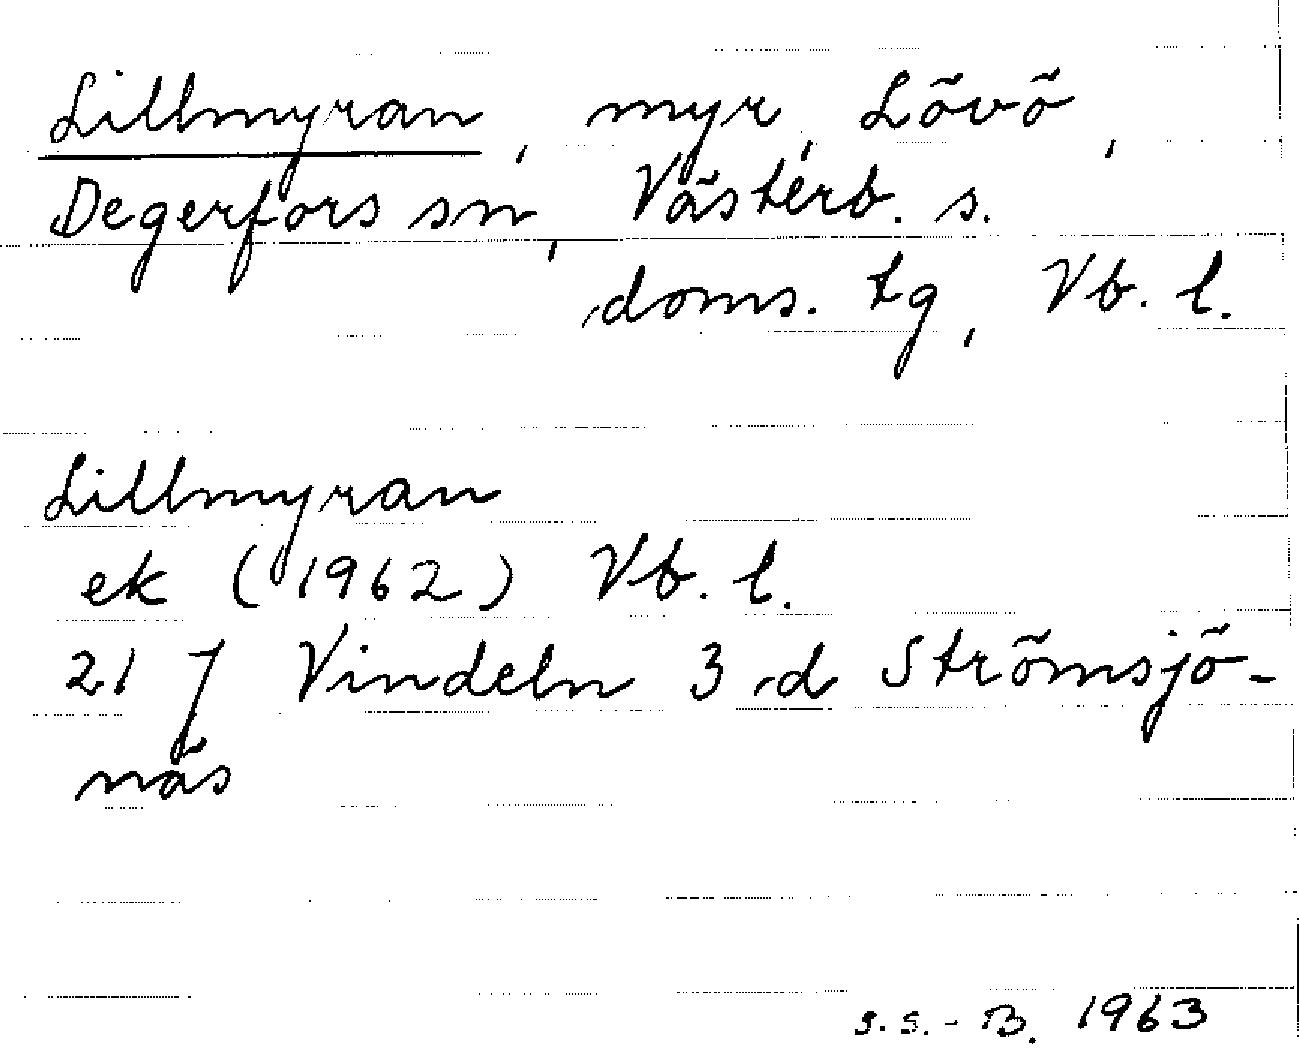 Lillmyran, myr, Lövö,
Degerfors sn, Västerb. s.
doms. tg, Vb. l.
Lillmyran
ek (1962) Vb. l.
21 J Vindeln 3 d Strömsjö-
näs
S.S.-B. 1963